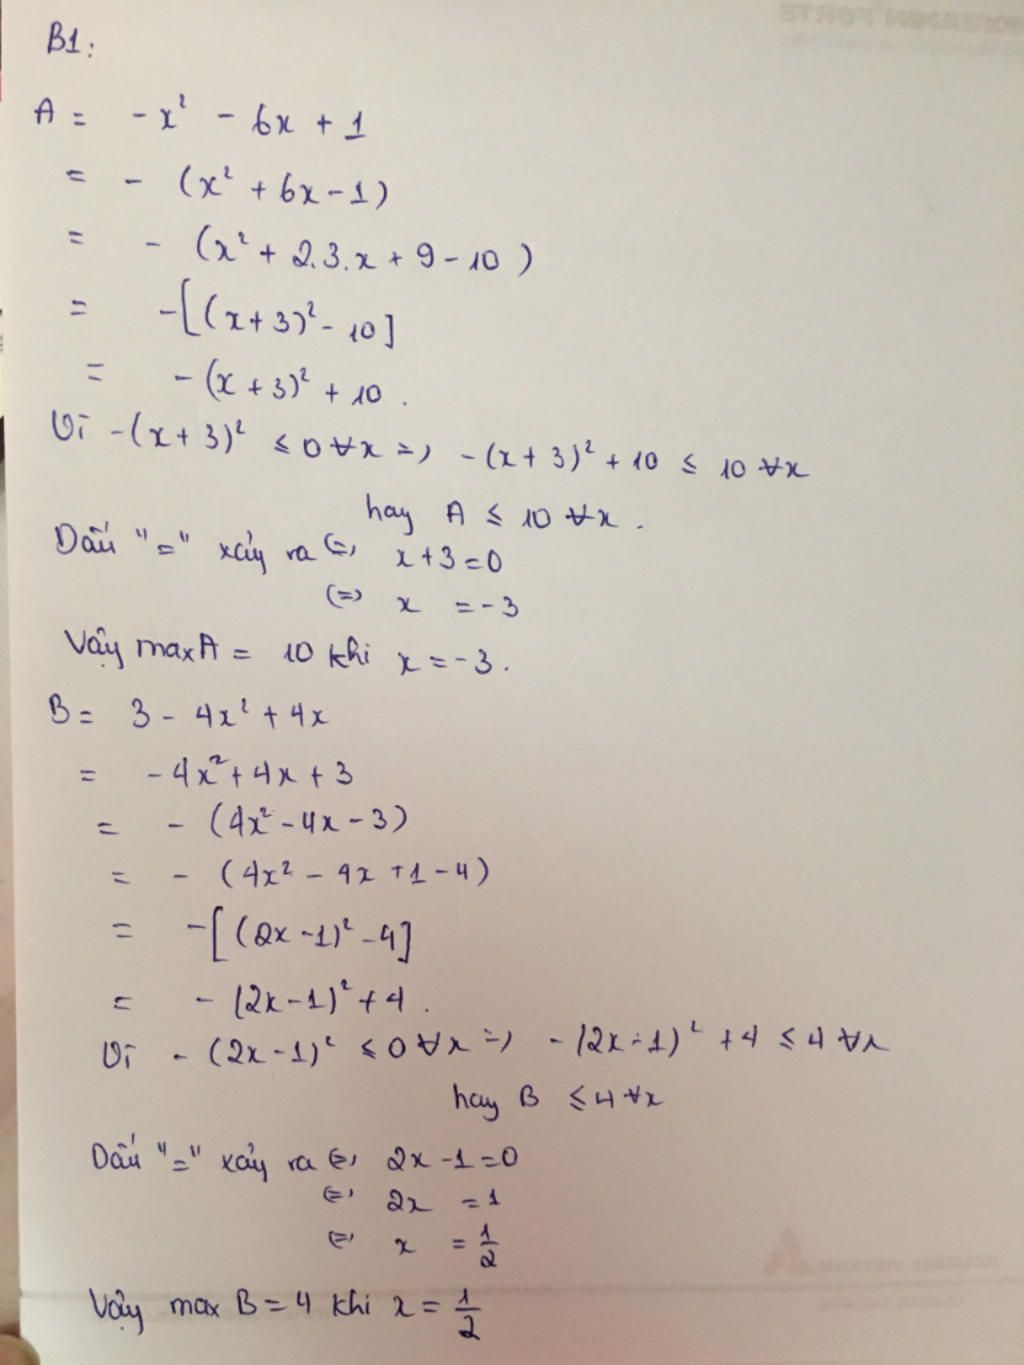 B1:
A = -x² - 6x + 1
= - (x² + 6x - 1)
= - (x² + 2.3.x + 9 - 10)
= -[(x+3)² - 10]
= -(x+3)² + 10.
Vì -(x+3)² ≤ 0 ∀x => -(x+3)² + 10 ≤ 10 ∀x
hay A ≤ 10 ∀x.
Dấu "=" xảy ra <=> x+3=0
<=> x = -3
Vậy maxA = 10 khi x = -3.
B = 3 - 4x² + 4x
= -4x² + 4x + 3
= - (4x² - 4x - 3)
= - (4x² - 4x + 1 - 4)
= -[(2x - 1)² - 4]
= - (2x - 1)² + 4.
Vì - (2x - 1)² ≤ 0 ∀x => - (2x - 1)² + 4 ≤ 4 ∀x
hay B ≤ 4 ∀x
Dấu "=" xảy ra <=> 2x - 1 = 0
<=> 2x = 1
<=> x = 1/2
ROUSSEL VIETNAM
Vậy max B = 4 khi x = 1/2